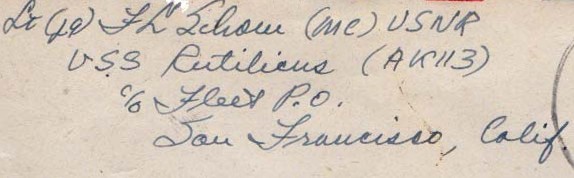 Lt (jg) F L Schou (MC) USNR
USS Rutilicus (AK113)
c/o Fleet P.O.
San Francisco, Calif.